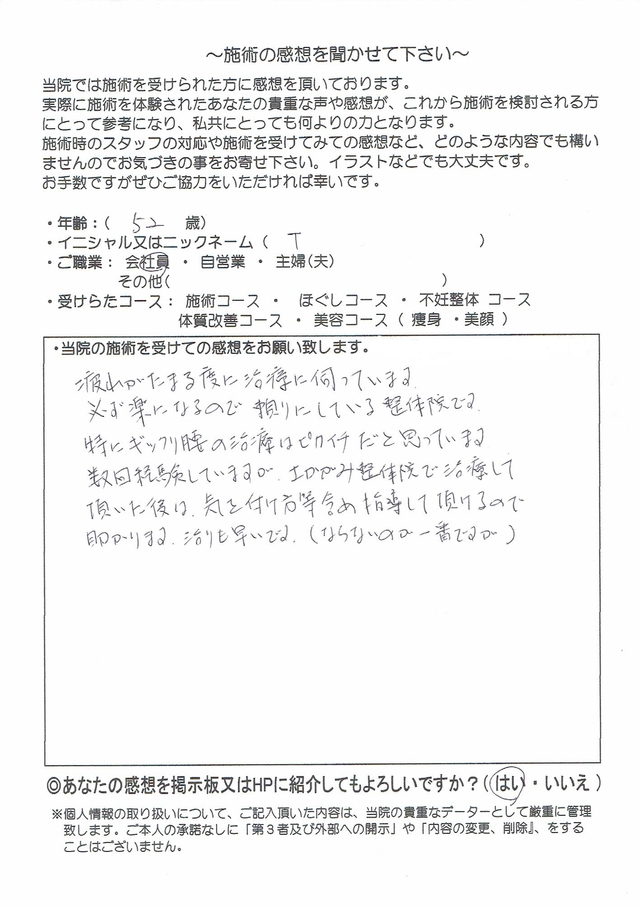 ～施術の感想を聞かせて下さい～
当院では施術を受けられた方に感想を頂いております。
実際に施術を体験されたあなたの貴重な声や感想が、これから施術を検討される方
にとって参考になり、私共にとっても何よりの力となります。
施術時のスタッフの対応や施術を受けてみての感想など、どのような内容でも構い
ませんのでお気づきの事をお寄せ下さい。イラストなどでも大丈夫です。
お手数ですがぜひご協力をいただければ幸いです。
・年齢：( 52 歳)
・イニシャル又はニックネーム ( T )
・ご職業： 会社員 ・ 自営業 ・ 主婦(夫)
その他( )
・受けらたコース： 施術コース ・ ほぐしコース ・ 不妊整体 コース
体質改善コース ・ 美容コース ( 痩身 ・美顔 )
・当院の施術を受けての感想をお願い致します。
疲れがたまる度に治療に伺っています
必ず楽になるので頼りにしている整体院です
特にギックリ腰の治療はピカイチだと思っています
数回経験していますが、土かがみ整体院で治療して
頂いた後は、気を付け方等含め指導して頂けるので
助かります、治りも早いです、(ならないのが一番ですが)
◎あなたの感想を掲示板又はHPに紹介してもよろしいですか？(はい・いいえ)
※個人情報の取り扱いについて、ご記入頂いた内容は、当院の貴重なデーターとして厳重に管理
致します。ご本人の承諾なしに「第３者及び外部への開示」や「内容の変更、削除』、をする
ことはございません。